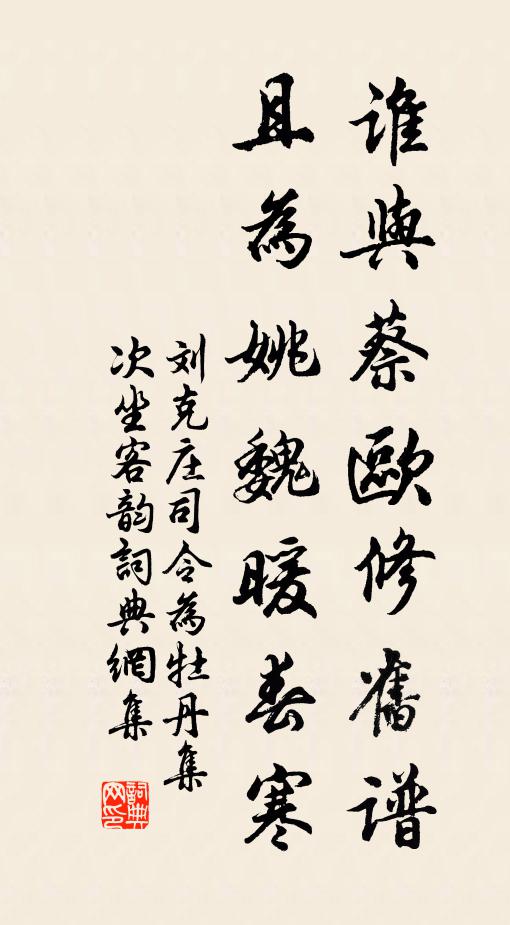 谁與蔡歐修舊谱
且為姚魏暖春寒
刘克庄司令為牡丹集
次坐客韵詞典網集
詞典网印